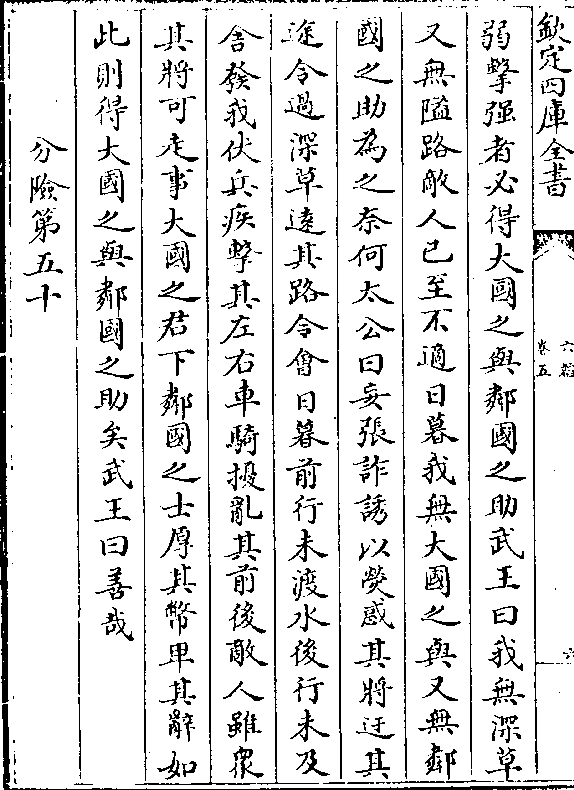 欽定四庫全書
六韜
卷五
六
弱擊强者必得大國之與鄰國之助武王曰我無深草
又無隘路敵人已至不適日暮我無大國之與又無鄰
國之助為之奈何太公曰妄張詐誘以熒惑其將迂其
途令過深草遠其路令㑹日暮前行未渡水後行未及
舍發我伏兵疾擊其左右車騎擾亂其前後敵人雖衆
其將可走事大國之君下鄰國之士厚其幣卑其辭如
此則得大國之與鄰國之助矣武王曰善哉
分險第五十